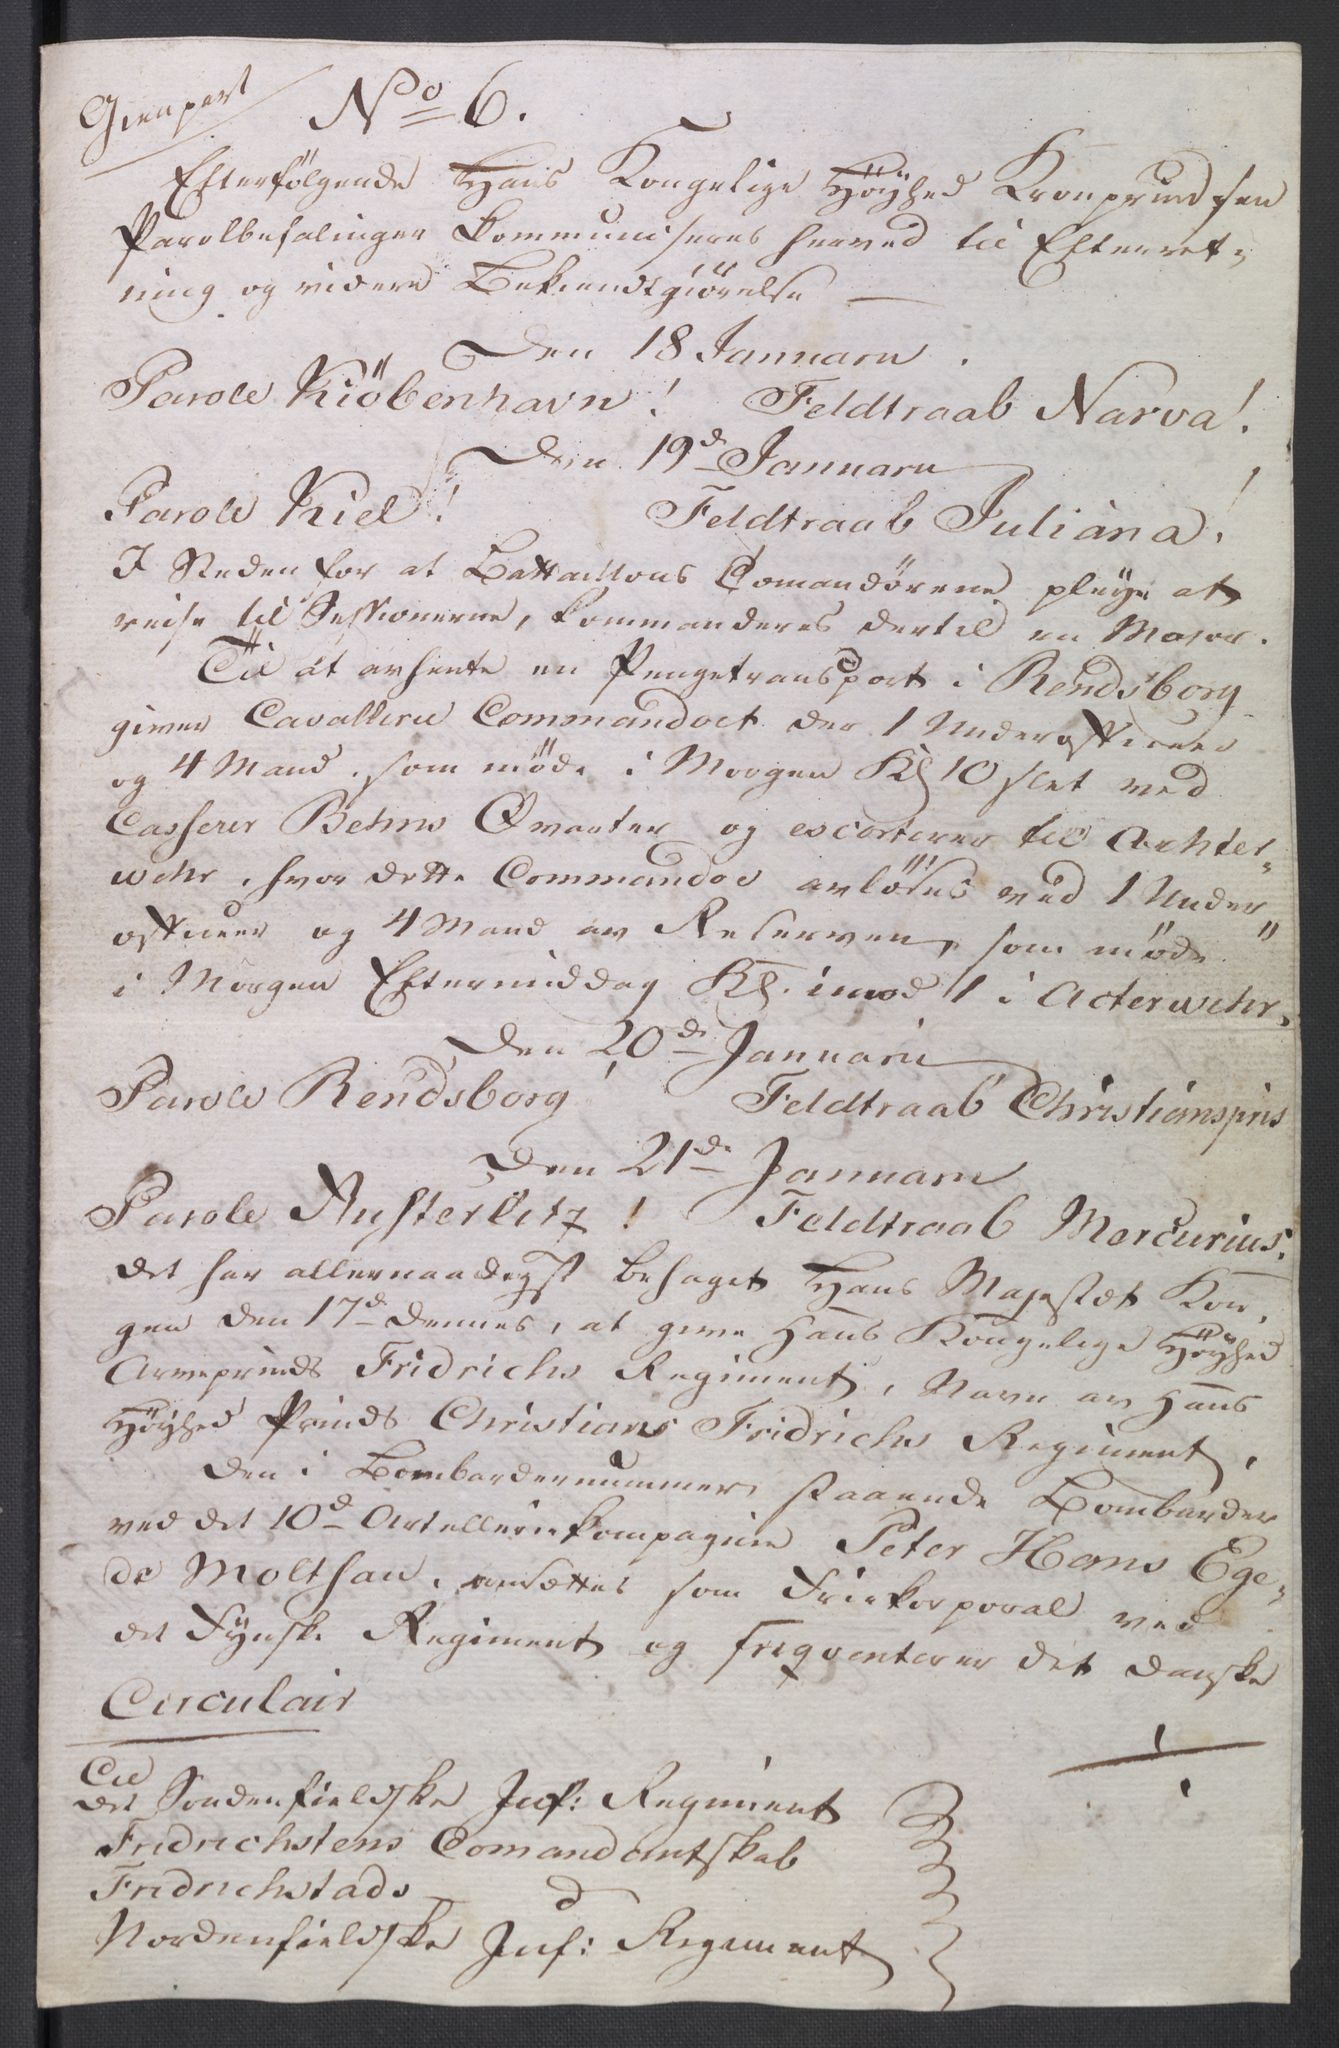 Gienpart
No 6.
Efterfølgende Hans Kongelige Høyhed Kronprindsen
Parolbefalinger kommuniseres herved til Efterret-
ning og videre Bekiendtgiørelse —
Den 18 Januarii.
Parole Kiöbenhavn! Feldtraab Narva!
Den 19d Januarii
Parole Kiel! Feldtraab Juliana!
I Steden for at Battaillons Comandörene pleye at
reise til Sessionerne, kommanderes dertil en Major.
Til at avhente en Pengetransport i Rendsborg
giver Cavallerie Commandoet der 1 Underofficeer
og 4 Mand, som möde i Morgen Kl 10 slet ved
Casserer Behns Qvarter og escorterer til Achter-
wehr, hvor dette Commandoe avlöses ved 1 Under
officeer og 4 Mand av Reserven, som möde
i Morgen Eftermiddag Kl. imod 1 i Acterwehr.
Den 20de Januarii
Parole Rendsborg! Feldtraab Christianspris
Den 21de Januarii
Parole Austerlitz! Feldtraab Mercurius.
Det har allernaadigst behaget Hans Majestæt Kon-
gen den 17d dennes, at give Hans Kongelige Høyhed
Arveprinds Fridrichs Regiment, Navn av Hans
Høyhed Prinds Christians Fridrichs Regiment.
Den i Bombardernummer staaende Bombarder
ved det 10d Artelleriekompagnie Peter Hans Ege-
de Molthan, ansættes som Friekorporal ved
det Fynske Regiment og friqventerer det danske
Circulair
Til
det Söndenfieldske Inf: Regiment
Fridrichstens Comandantskab
Fridrichstads — d
Nordenfieldske Inf: Regiment